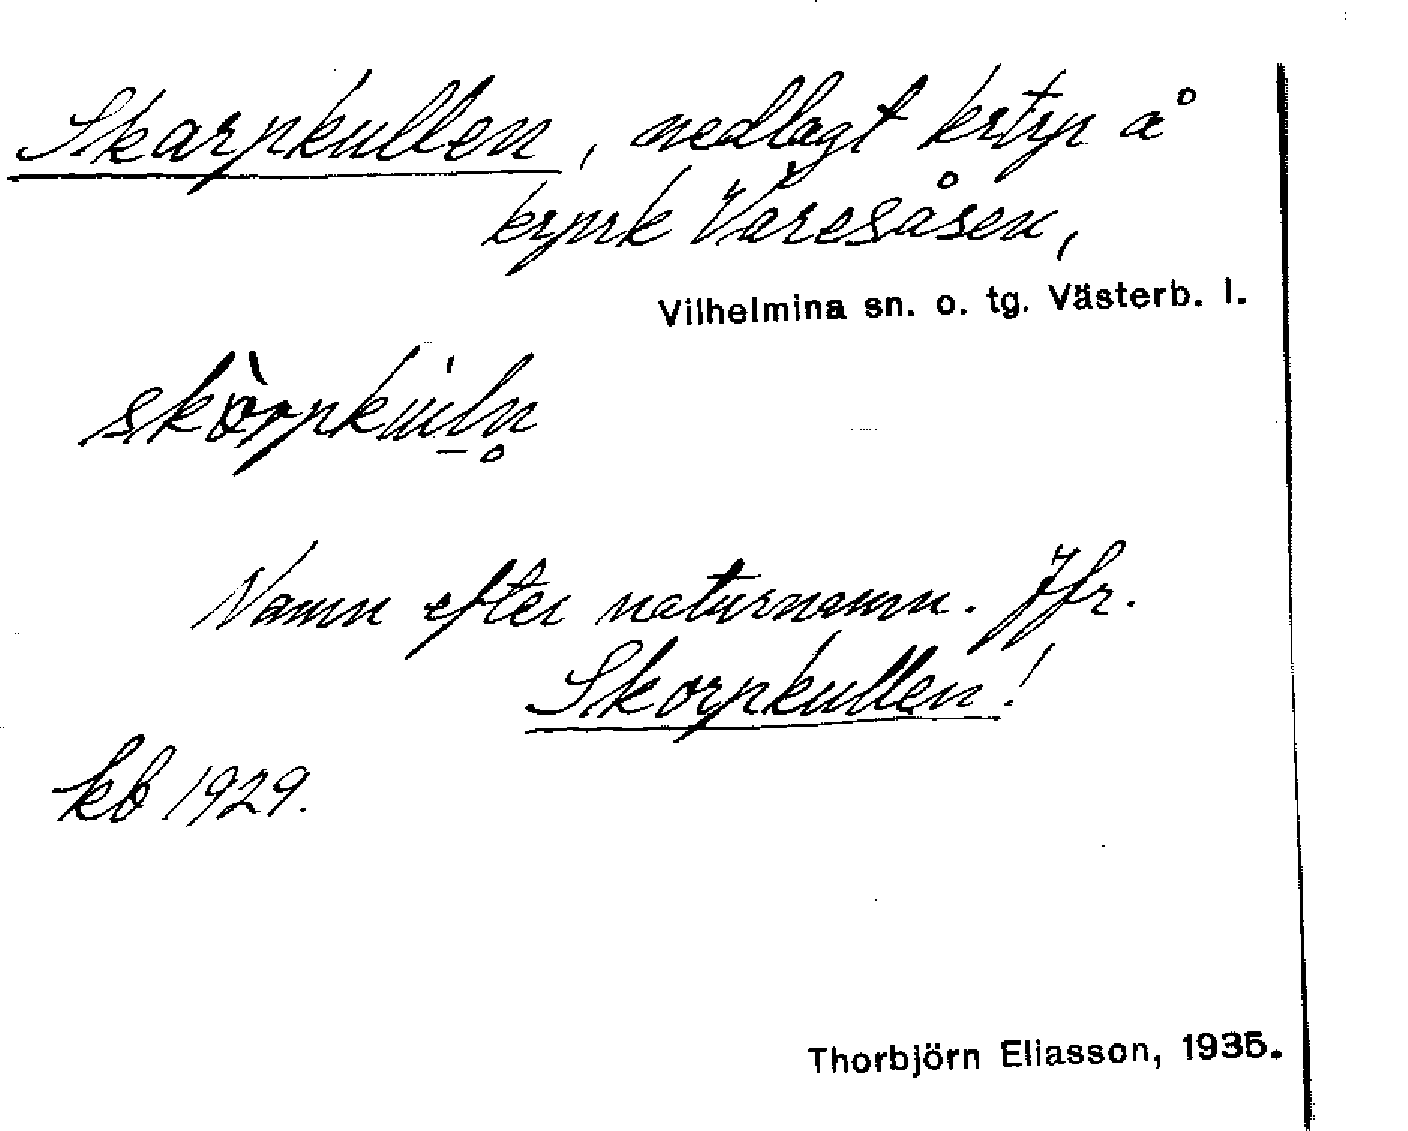 Skarpkullen, nedlagt krtrp å
krprk Varesåsen,
Vilhelmina sn. o. tg. Västerb. l.
Namn efter naturnamn. Jfr.
Skorpkullen!
kb 1929.
Thorbjörn Eliasson, 1935.